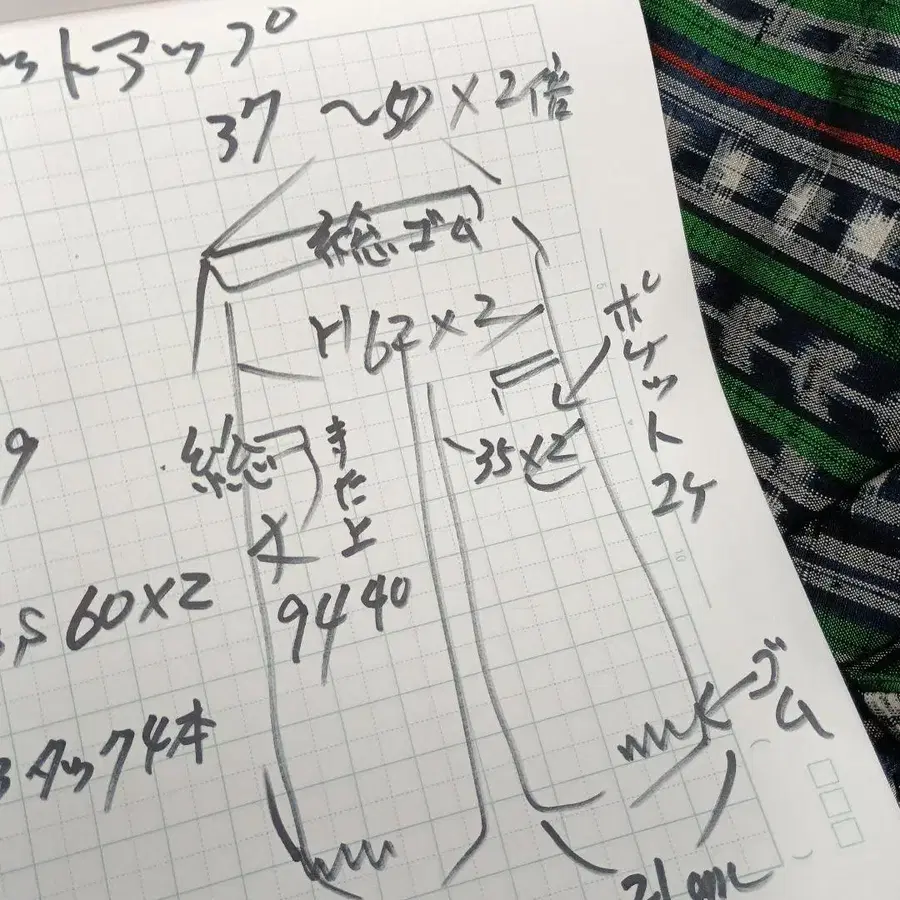 ットアップ
37 〜50×2倍
総ゴム
H62×2
ポケット2ケ
35×2
総丈
また上
9440
9
60×2
タック4本
ゴム
21cm